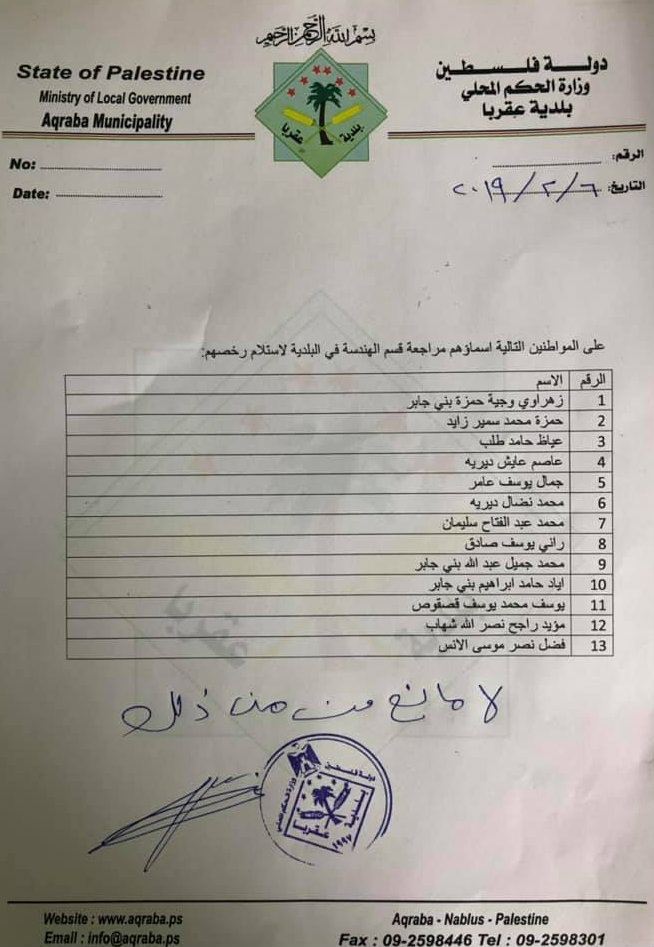 بسم الله الرحمن الرحيم
State of Palestine
Ministry of Local Government
Aqraba Municipality
دولة فلسطين
وزارة الحكم المحلي
بلدية عقربا
بلدية عقربا
No:
Date:
الرقم:
التاريخ: ٢٠١٩/٢/٦
على المواطنين التالية اسماؤهم مراجعة قسم الهندسة في البلدية لاستلام رخصهم:
الرقم الاسم
1 زهراوي وجية حمزة بني جابر
2 حمزة محمد سمير زايد
3 عياظ حامد طلب
4 عاصم عايش ديريه
5 جمال يوسف عامر
6 محمد نضال ديريه
7 محمد عبد الفتاح سليمان
8 راني يوسف صادق
9 محمد جميل عبد الله بني جابر
10 اياد حامد ابراهيم بني جابر
11 يوسف محمد يوسف قصقوص
12 مؤيد راجح نصر الله شهاب
13 فضل نصر موسى الانس
لا مانع من ذلك
دولة فلسطين
وزارة الحكم المحلي
بلدية عقربا
١٩٩٧
Website : www.aqraba.ps
Email : info@aqraba.ps
Aqraba - Nablus - Palestine
Fax : 09-2598446 Tel : 09-2598301